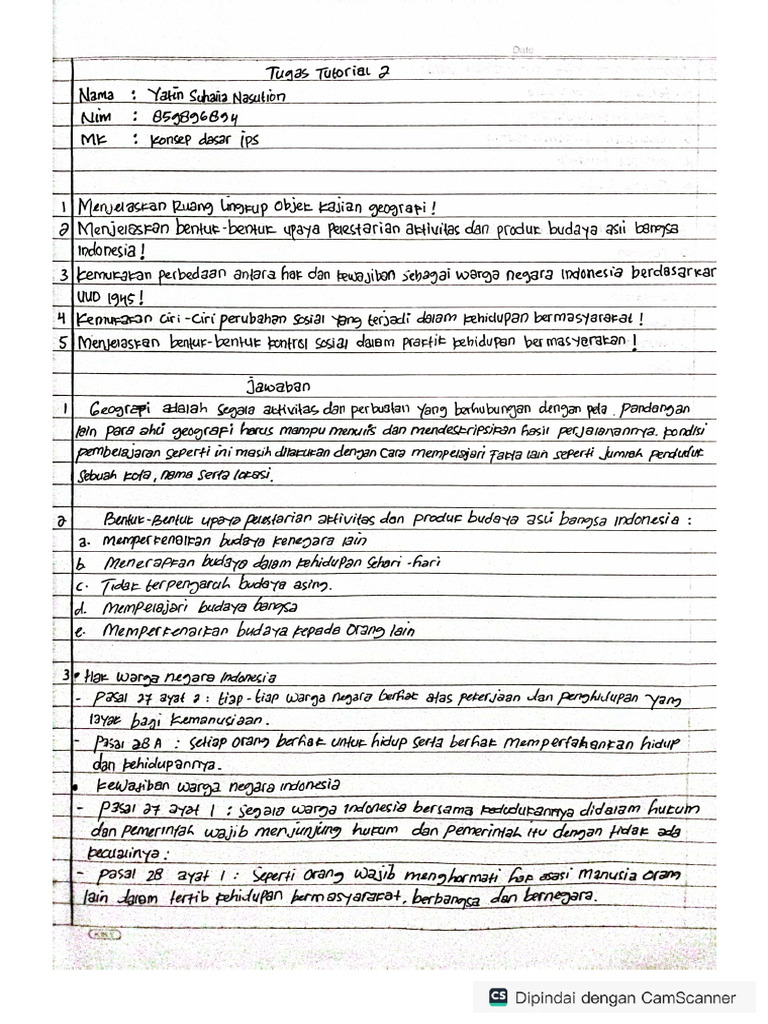 Date
Tugas Tutorial 2
Nama : Yatin Suhaila Nasution
Nim : 859896894
MK : Konsep dasar ips
1 Menyelaskan Ruang lingkup objek kajian geografi !
2 Menjelaskan bentuk-bentuk upaya pelestarian aktivitas dan produk budaya asli bangsa
indonesia !
3 kemukakan perbedaan antara hak dan kewajiban sebagai warga negara indonesia berdasarkar
UUD 1945 !
4 kemukakan ciri-ciri perubahan sosial yang terjadi dalam kehidupan bermasyarakat !
5 Menjelaskan bentuk-bentuk kontrol sosial dalam praktik kehidupan bermasyarakan !
jawaban
1 Geograpi adalah segala aktivitas dan perbuatan yang berhubungan dengan peta. pandangan
lain para ahli geografi harus mampu menulis dan mendeskripsikan hasil perjalanannya. kondisi
pembelajaran seperti ini masih dilakukan dengan cara mempelajari fakta lain seperti jumlah penduduk
sebuah kota, nama serta lokasi.
2 Bentuk-Bentuk upaya pelestarian aktivitas dan produk budaya asli bangsa indonesia :
a. memperkenalkan budaya kenegara lain
b. Menerapkan budaya dalam kehidupan sehari-hari
c. Tidak terpengaruh budaya asing.
d. Mempelajari budaya bangsa
e. Memperkenalkan budaya kepada orang lain
3 • Hak warga negara indonesia
- pasal 27 ayat 2 : tiap-tiap warga negara berhak atas pekerjaan dan penghidupan yang
layak bagi kemanusiaan.
- pasal 28 A : setiap orang berhak untuk hidup serta berhak mempertahankan hidup
dan kehidupannya.
• kewajiban warga negara indonesia
- pasal 27 ayat 1 : segala warga indonesia bersama kedudukannya didalam hukum
dan pemerintah wajib menjunjung hukum dan pemerintah itu dengan tidak ada
kecualinya :
- pasal 28 ayat 1 : seperti orang wajib menghormati hak asasi manusia oram
lain dalam tertib kehidupan bermasyarakat, berbangsa dan bernegara.
CS Dipindai dengan CamScanner